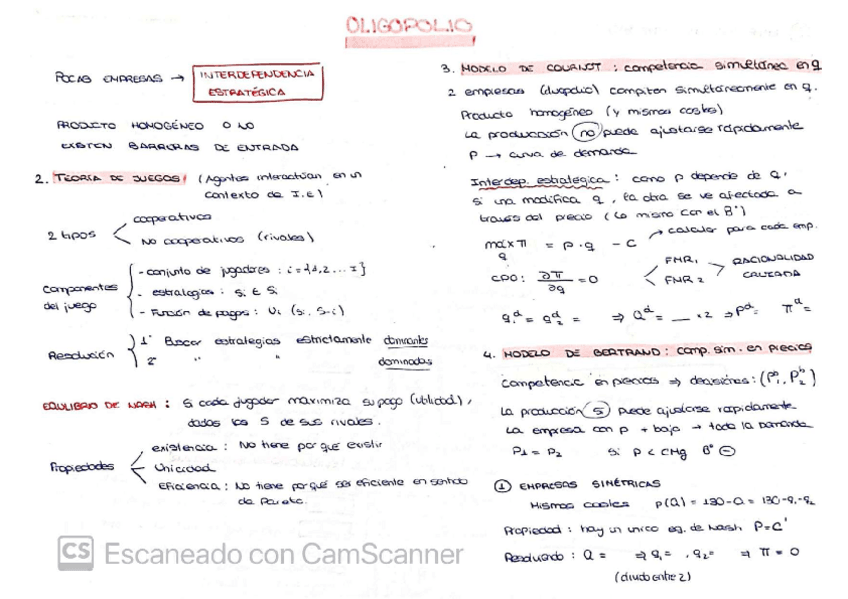 OLIGOPOLIO
POCAS EMPRESAS → INTERDEPENDENCIA
ESTRATÉGICA
PRODUCTO HOMOGÉNEO O NO
EXISTEN BARRERAS DE ENTRADA
2. TEORÍA DE JUEGOS (Agentes interactúan en un
contexto de I.E)
2 tipos
cooperativos
No cooperativos (rivales)
Componentes
del juego
- conjunto de jugadores: i = {1,2 ... I}
- estrategias: Si ∈ Si
- Función de pagos: Ui (Si, S-i)
Resolución
1º Buscar estrategias estrictamente dominantes
2º " " dominadas
EQUILIBRIO DE NASH: Si cada jugador maximiza su pago (utilidad),
dados los S de sus rivales.
Propiedades
existencia: No tiene por qué existir
Unicidad
Eficiencia: No tiene por qué ser eficiente en sentido
de Pareto.
3. MODELO DE COURNOT: competencia simultánea en q
2 empresas (duopolio) compiten simultáneamente en q.
Producto homogéneo (y mismos costes)
La producción no puede ajustarse rápidamente
P → curva de demanda
Interdep. estratégica: como p depende de Q,
si una modifica q, la otra se ve afectada a
través del precio (Lo mismo con el Bº)
→ calcular para cada emp.
máx π = p · q - C
q
CPO: ∂π/∂q = 0
FMR1
FMR2
RACIONALIDAD
CRUZADA
⇒ Q = __ x2 ⇒ P
4. MODELO DE BERTRAND: comp. sim. en precios
Competencia en precios ⇒ decisiones: (P1, P2)
La producción sí puede ajustarse rápidamente
La empresa con p + bajo → toda la demanda
P1 = P2 Si P < CMg Bº ⊖
① EMPRESAS SIMÉTRICAS
Mismos costes p(Q) = 130-Q = 130-q1-q2
Propiedad: hay un único eq. de Nash P=C'
Resultado: Q = ⇒ q1=, q2= ⇒ π = 0
(divido entre 2)
CS Escaneado con CamScanner